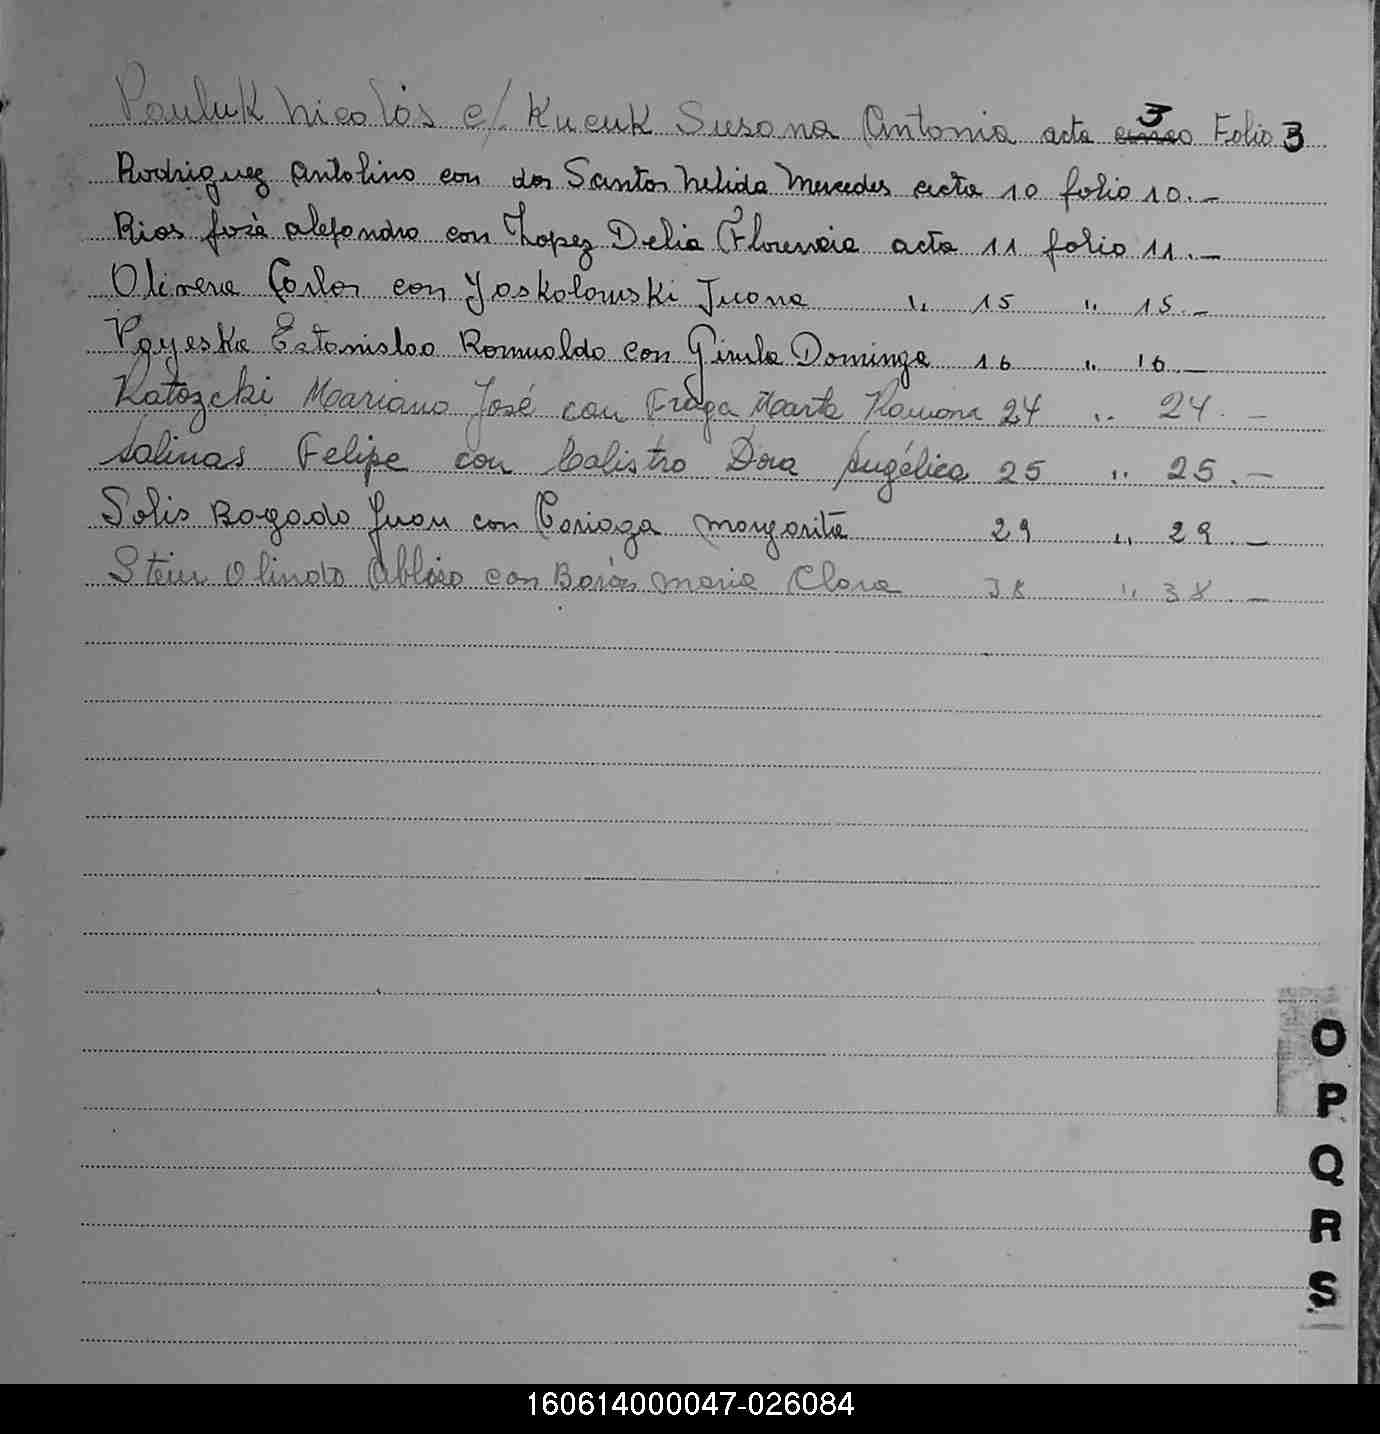 Pauluk Nicolás c/ Kucuk Susana Antonia acta cinco 3 Folio 3
Rodriguez Antolino con dos Santos Nelida Mercedes acta 10 folio 10.-
Rios José Alejandro con Lopez Delia Florencia acta 11 folio 11.-
Olivera Carlos con Yoskolowski Juana " 15 " 15.-
Payeska Estanislao Romualdo con Dominga 16 " 16.-
Ratozcki Mariano José con Fraga Marta Ramona 24 " 24.-
Salinas Felipe con Calistro Dora Angélica 25 " 25.-
Solis Bogado Juan con Cariaga Margarita 29 " 29.-
Stein Olindo con María Clara 38 " 38.-
O
P
Q
R
S
160614000047-026084